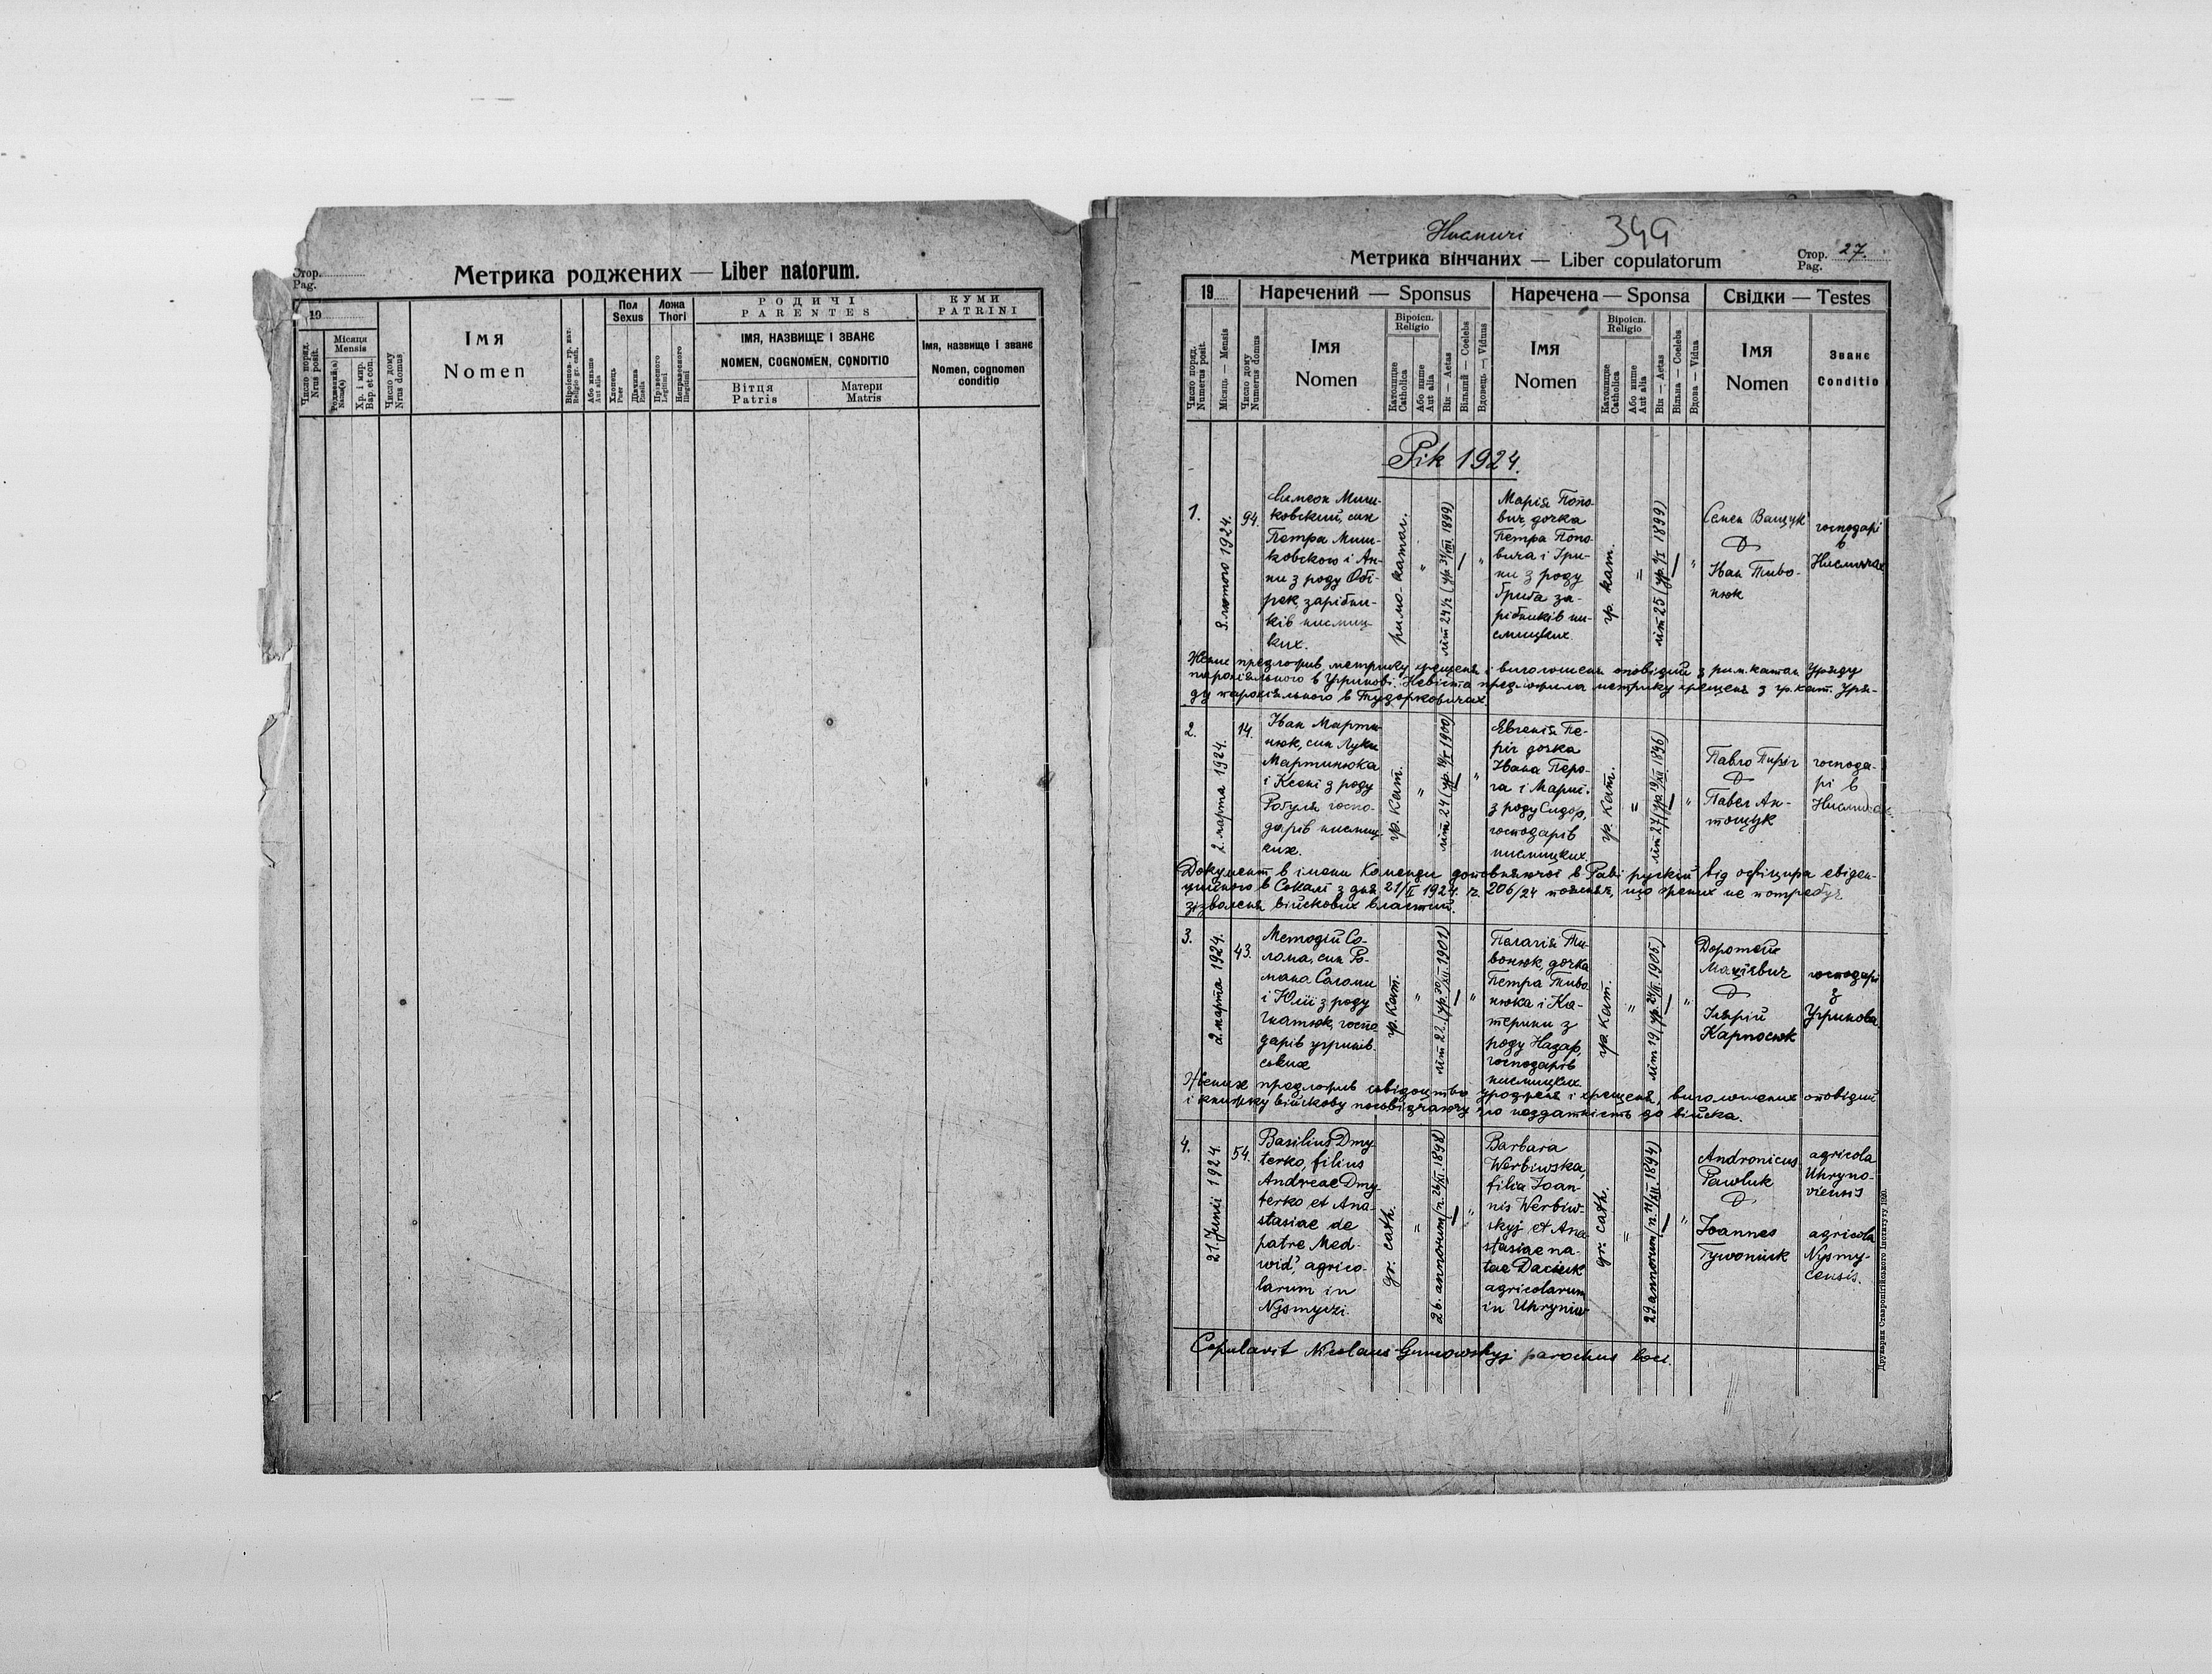 Стор.
Pag.
Метрика роджених — Liber natorum.
19
Число поряд.
Nrus posit.
Місяця
Mensis
Хр. і мир.
Bap. et con.
Число дому
Nrus domus
Імя
Nomen
Або инше
Aut alia
Пол
Sexus
Хлопець
Puer
Дївчина
Puella
Ложа
Thori
Правесного
Legitimi
Неправесного
Illegitimi
РОДИЧІ
PARENTES
ІМЯ, НАЗВИЩЕ І ЗВАНЄ
NOMEN, COGNOMEN, CONDITIO
Вітця
Patris
Матери
Matris
КУМИ
PATRINI
Імя, назвище і званє
Nomen, cognomen
conditio
Нисмичі
344
Метрика вінчаних — Liber copulatorum
Стор.
Pag.
27.
19
Наречений — Sponsus
Наречена — Sponsa
Свідки — Testes
Число поряд.
Numerus posit.
Місяць — Mensis
Число дому
Numerus domus
Імя
Nomen
Віроісп.
Religio
Католицке
Catholica
Або инше
Aut alia
Вік — Aetas
Вільний — Coelebs
Вдовець — Viduus
Імя
Nomen
Віроісп.
Religio
Католицке
Catholica
Або инше
Aut alia
Вік — Aetas
Вільна — Coelebs
Вдова — Vidua
Імя
Nomen
Званє
Conditio
Рік 1924.
1.
лютого 1924.
94.
Симеон Миш-
ковский, син
Петра Миш-
ковского і Ан-
ни з роду
зарібни-
ків нисмиц-
ких.
римо-катол.
"
літ 24½ (ур. 31/III 1899)
"
Марія Попо-
вич, дочка
Петра Попо-
вича і
ни з роду
Гриба за-
рібників ни-
смицких.
гр. кат.
"
літ 25 (ур. 1/I 1899)
"
Семен Ващук
Іван Тиво-
нюк
господарі
в
Нисмичах
Жених предложив метрику хрещеня і виголошеня оповідий з рим. катол. Уряду
парохіяльного в Угринові. Невіста предложила метрику хрещеня з гр. кат. Уря-
ду парохіяльного в Тудорковичах.
2.
2. марта 1924.
14.
Іван Марти-
нюк, син Луки
Мартинюка
і Ксені з роду
госпо-
дарів нисмиц-
ких.
гр. кат.
"
літ 24 1900)
"
Евгенія Пе-
ріг дочка
Івана Перо-
га і Марії
з роду Сидор,
господарів
нисмицких.
гр. кат.
"
літ 27 (ур. 19/XII 1896)
"
Павло Пиріг
Павел Ан-
тощук
господа-
рі в
Нисмичах.
Документ в імени Команди доповняючої в Раві рускій від офіцира евіден-
ційного в Сокали з дня 21/II 1924. ч. 206/24 поясняє, що жених не потребує
зізволеня війскових властий.
3.
2. марта 1924.
43.
Методій Со-
лома, син Ро-
мана Соломи
і Юлії з роду
Гнатюк, госпо-
дарів угринів-
ських
гр. кат.
"
літ 22. (ур. 30/XII 1901)
"
Пелагія Ти-
вонюк, дочка
Петра Тиво-
нюка і Ка-
терини з
роду Назар,
господарів
нисмицких.
гр. кат.
"
літ 19 (ур. 24/II 1905.)
"
Доротей
Мацієвич
Ілярій
Карпосюк
господарі
з
Угринова.
Жених предложив свідоцтво уродженя і хрещеня, виголошених оповідий
і книжку війскову посвідчаючу его нездатність до війска.
4.
21. Junii 1924.
54.
Basilius Dmy-
terko, filius
Andreae Dmy-
terko et Ana-
stasiae de
patre Med-
wid', agrico-
larum in
Nysmyczi.
gr. cath.
"
26. annorum (n. 26/II. 1898)
"
Barbara
Werbiwska,
filia Joan-
nis Werbiw-
skyj et Ana-
stasiae na-
tae Daciuk
agricolarum
in Uhryniw
gr. cath.
"
29. annorum (n. 11/XII. 1894)
"
Andronicus
Pawluk
Joannes
Tywoniuk
agricola
Uhryno-
viensis
agricola
Nysmy-
censis.
Copulavit Nicolaus parochus loci.
Друкарня Ставропігійського Інституту 1920.